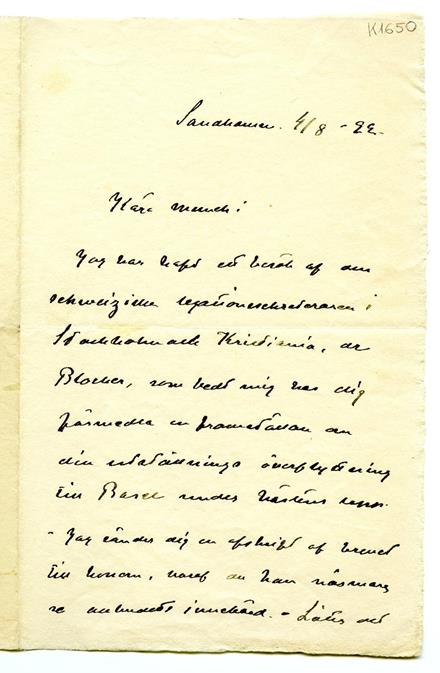 K1650
Sandhamn. 4/8 - 22.
Kära Munch!
Jag har haft ett besök af den
schweiziske legationssekreteraren i
Stockholm och Kristiania, dr
Blocher, som bedt mig hos dig
förmedla en framställan om
din utställnings överflyttning
till Basel under höstens lopp.
- Jag sänder dig en afskrift af brevet
till honom, varaf du kan närmare
se anbudets innehåll. - Låter det